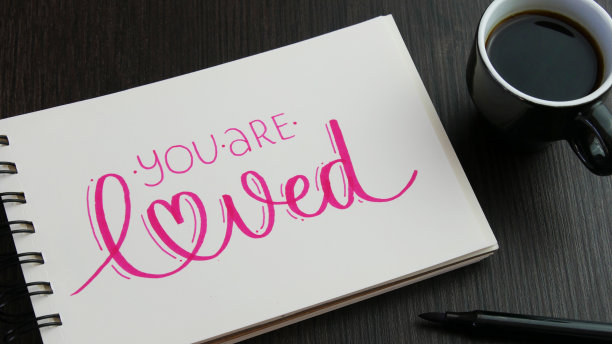 ·YOU·aRE·
loved